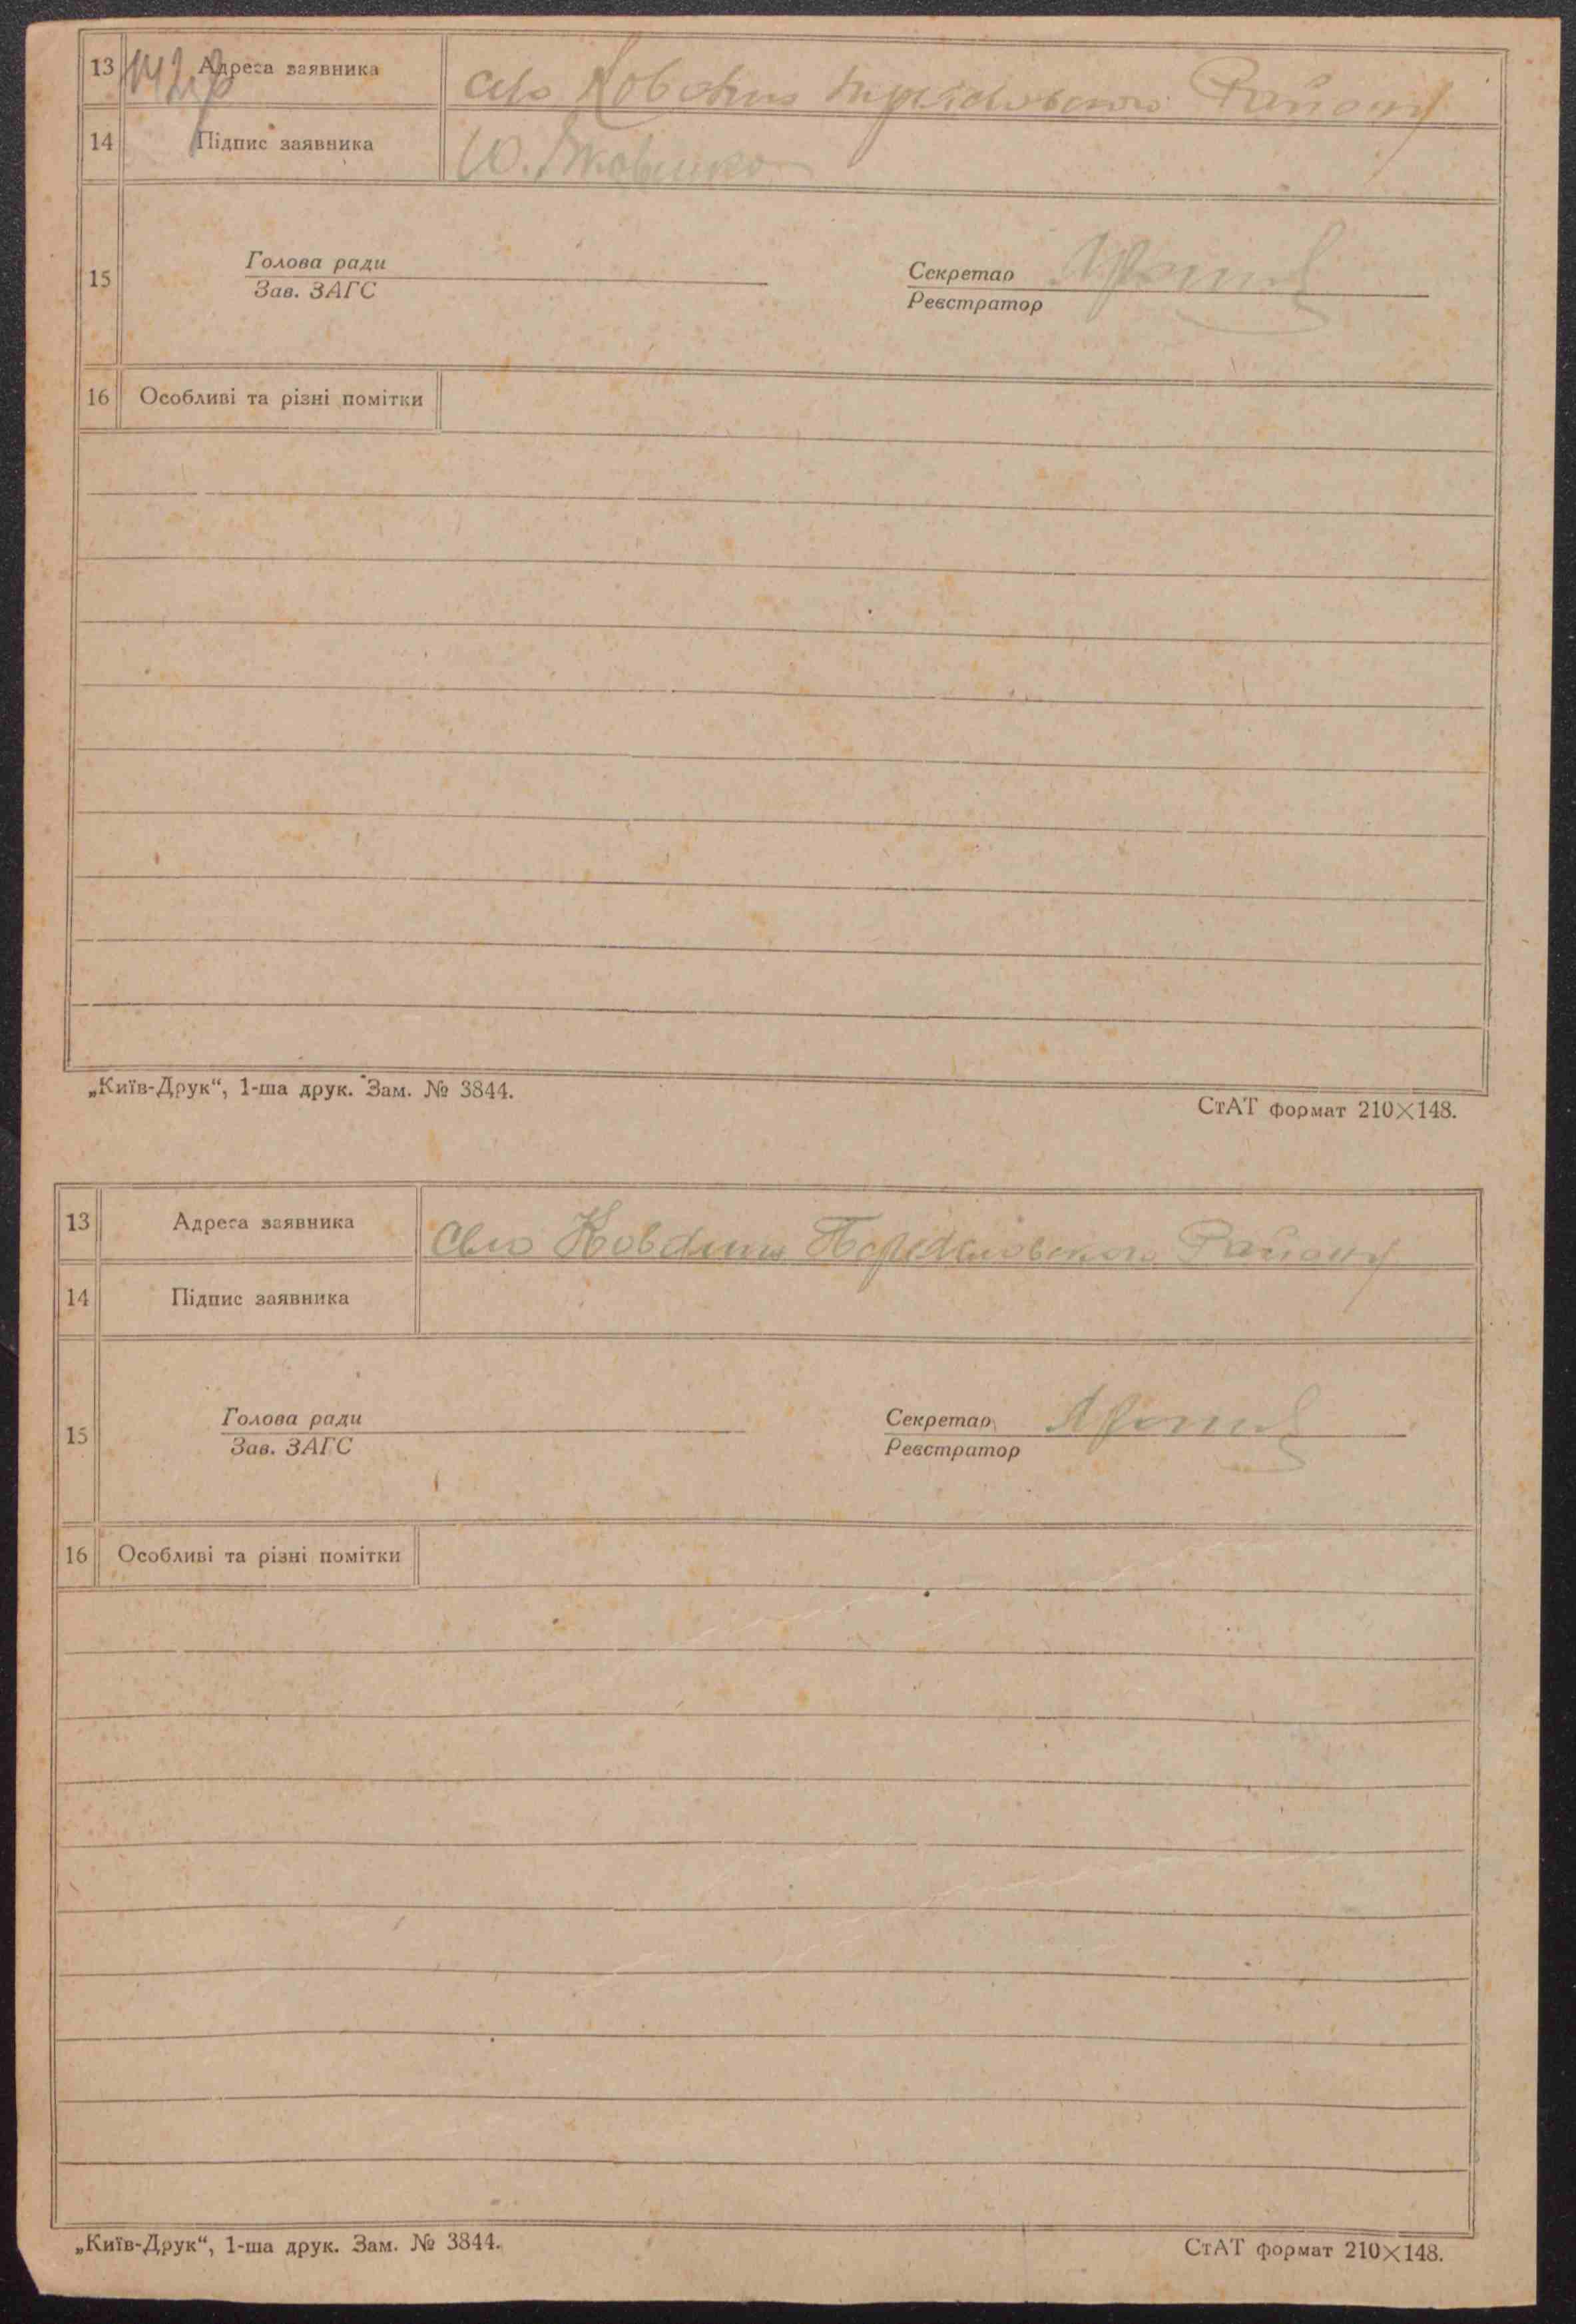 13 Адреса заявника село Ковалин Району
14 Підпис заявника Ю. Яковенко
15 Голова ради
Зав. ЗАГС
Секретар
Реєстратор
16 Особливі та різні помітки
„Київ-Друк“, 1-ша друк. Зам. № 3844.
СтАТ формат 210×148.
13 Адреса заявника Село Ковалин Району
14 Підпис заявника
15 Голова ради
Зав. ЗАГС
Секретар
Реєстратор
16 Особливі та різні помітки
„Київ-Друк“, 1-ша друк. Зам. № 3844.
СтАТ формат 210×148.